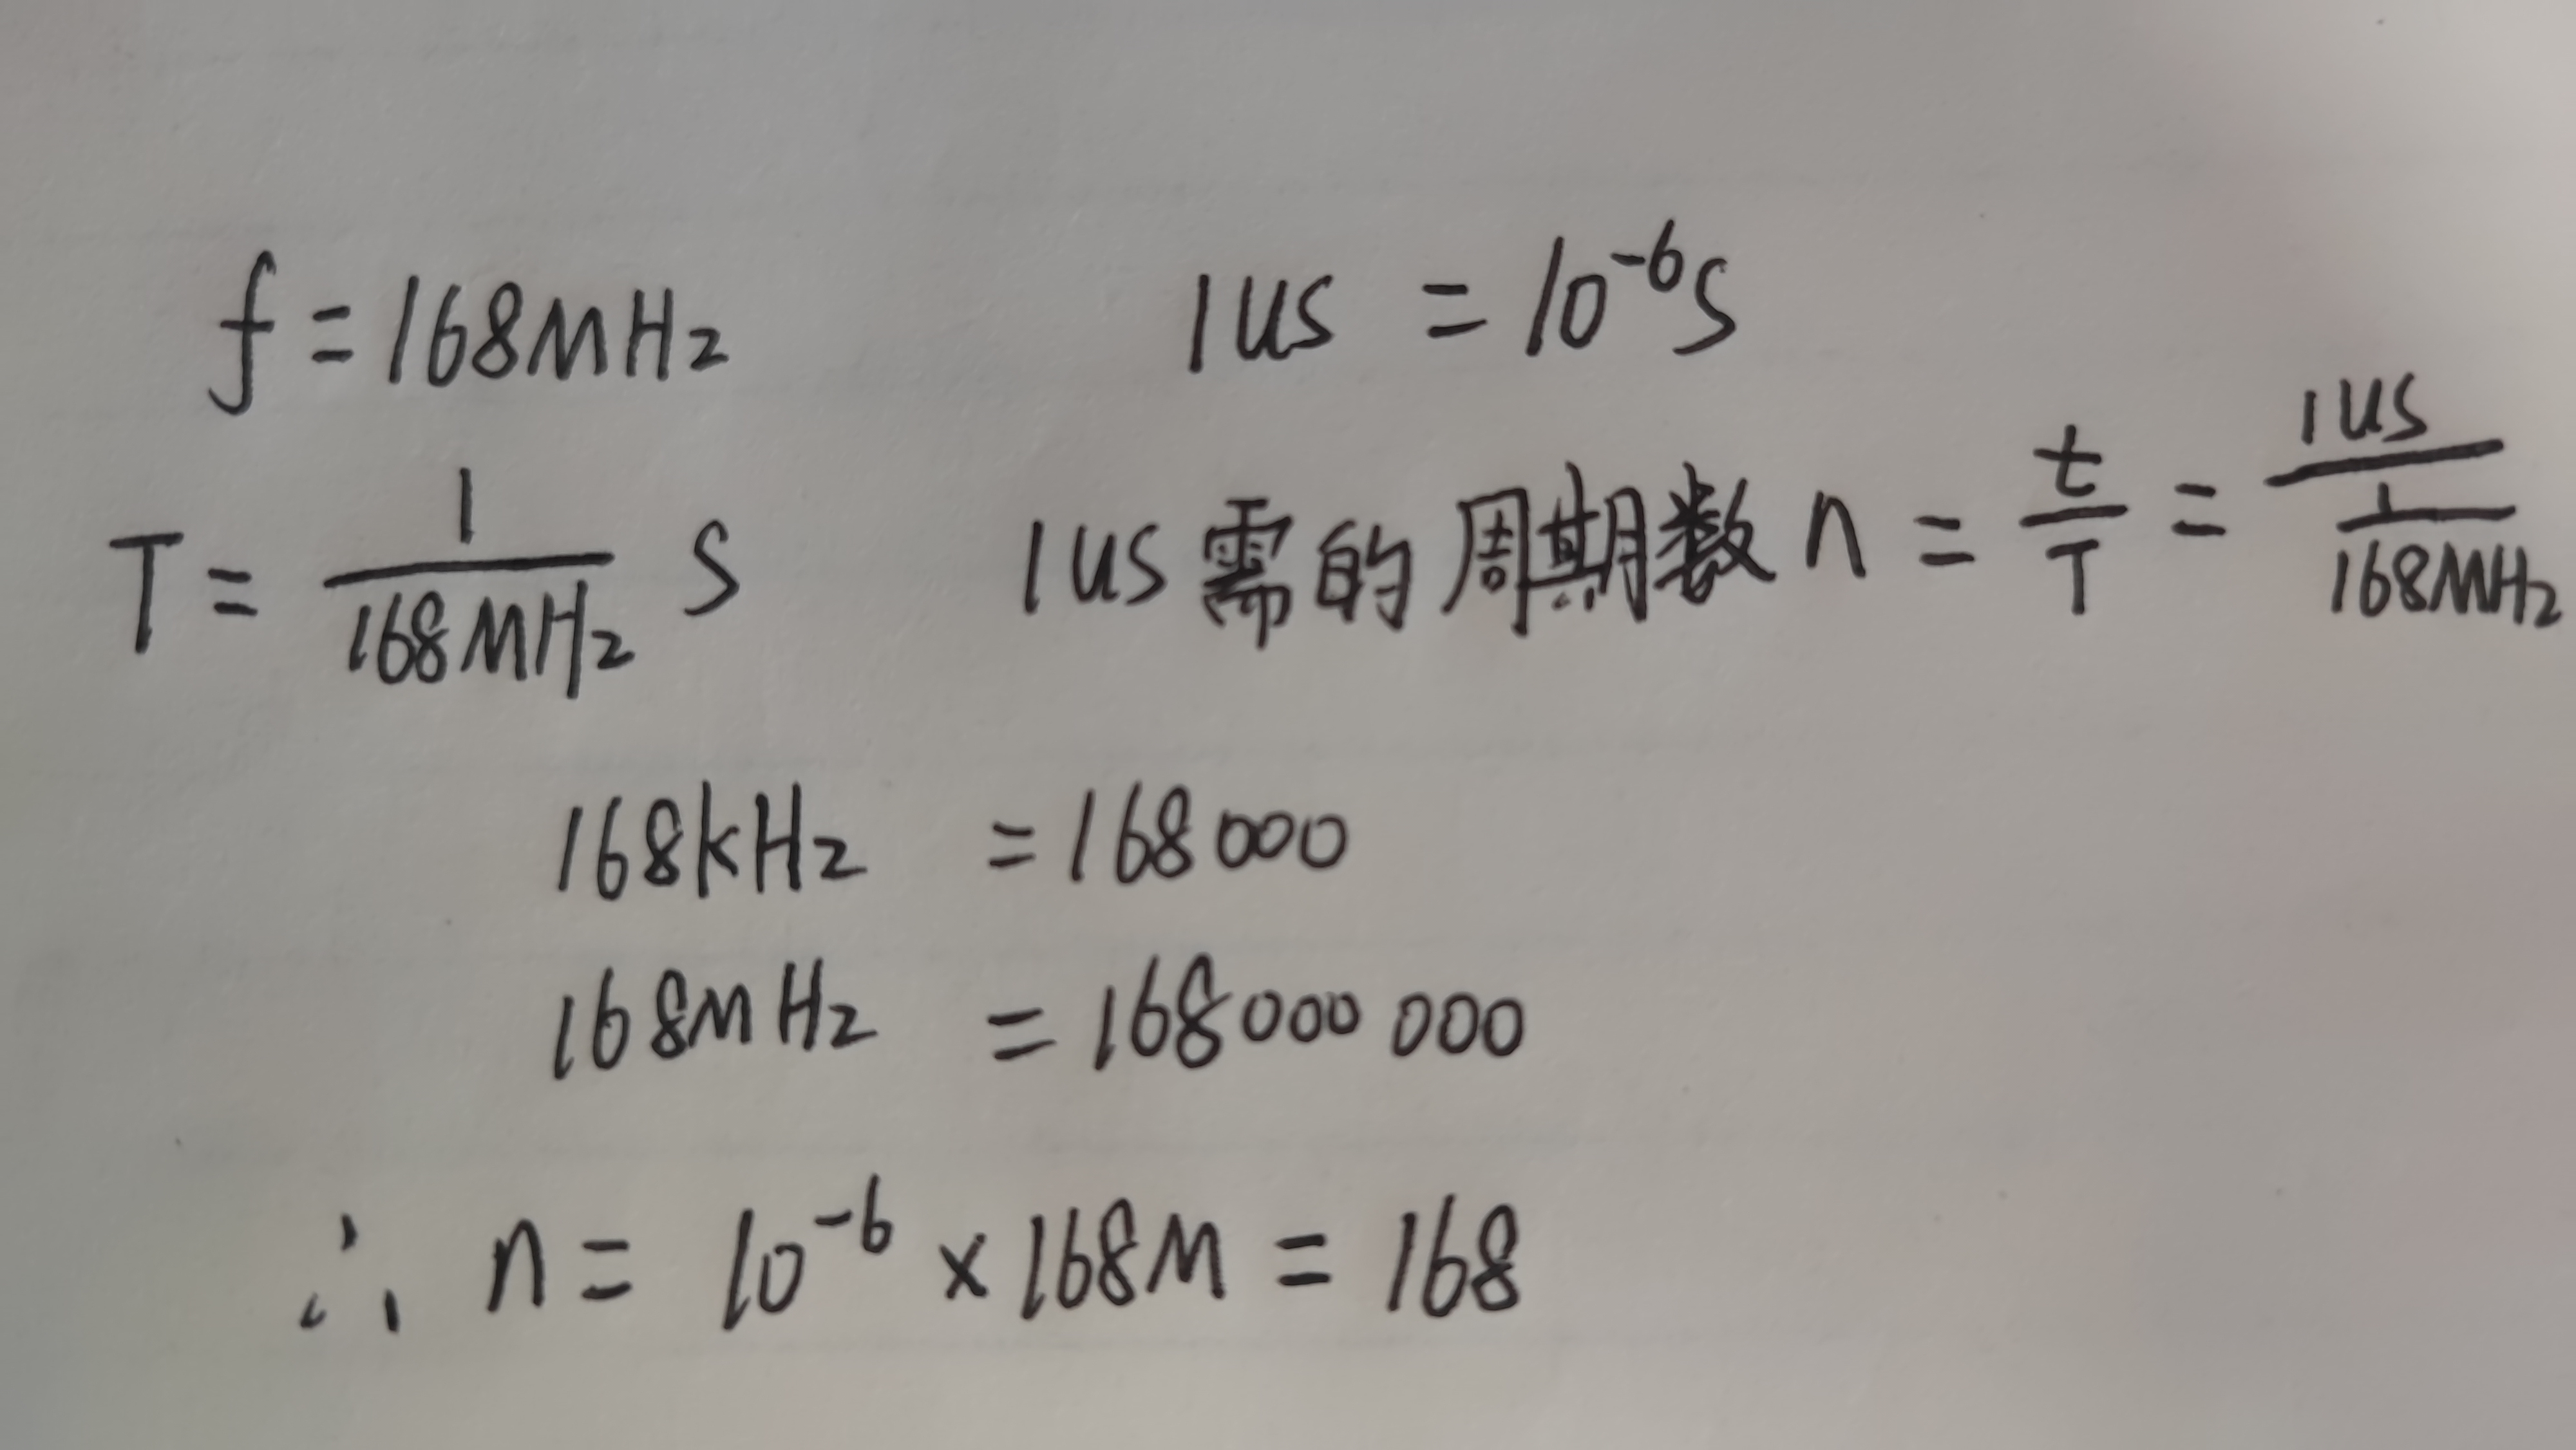 f = 168MHz
1us = 10⁻⁶s
T = 1/168MHz s
1us需的周期数 n = t/T = 1us/(1/168MHz)
168kHz = 168000
168MHz = 168000 000
∴ n = 10⁻⁶ × 168M = 168